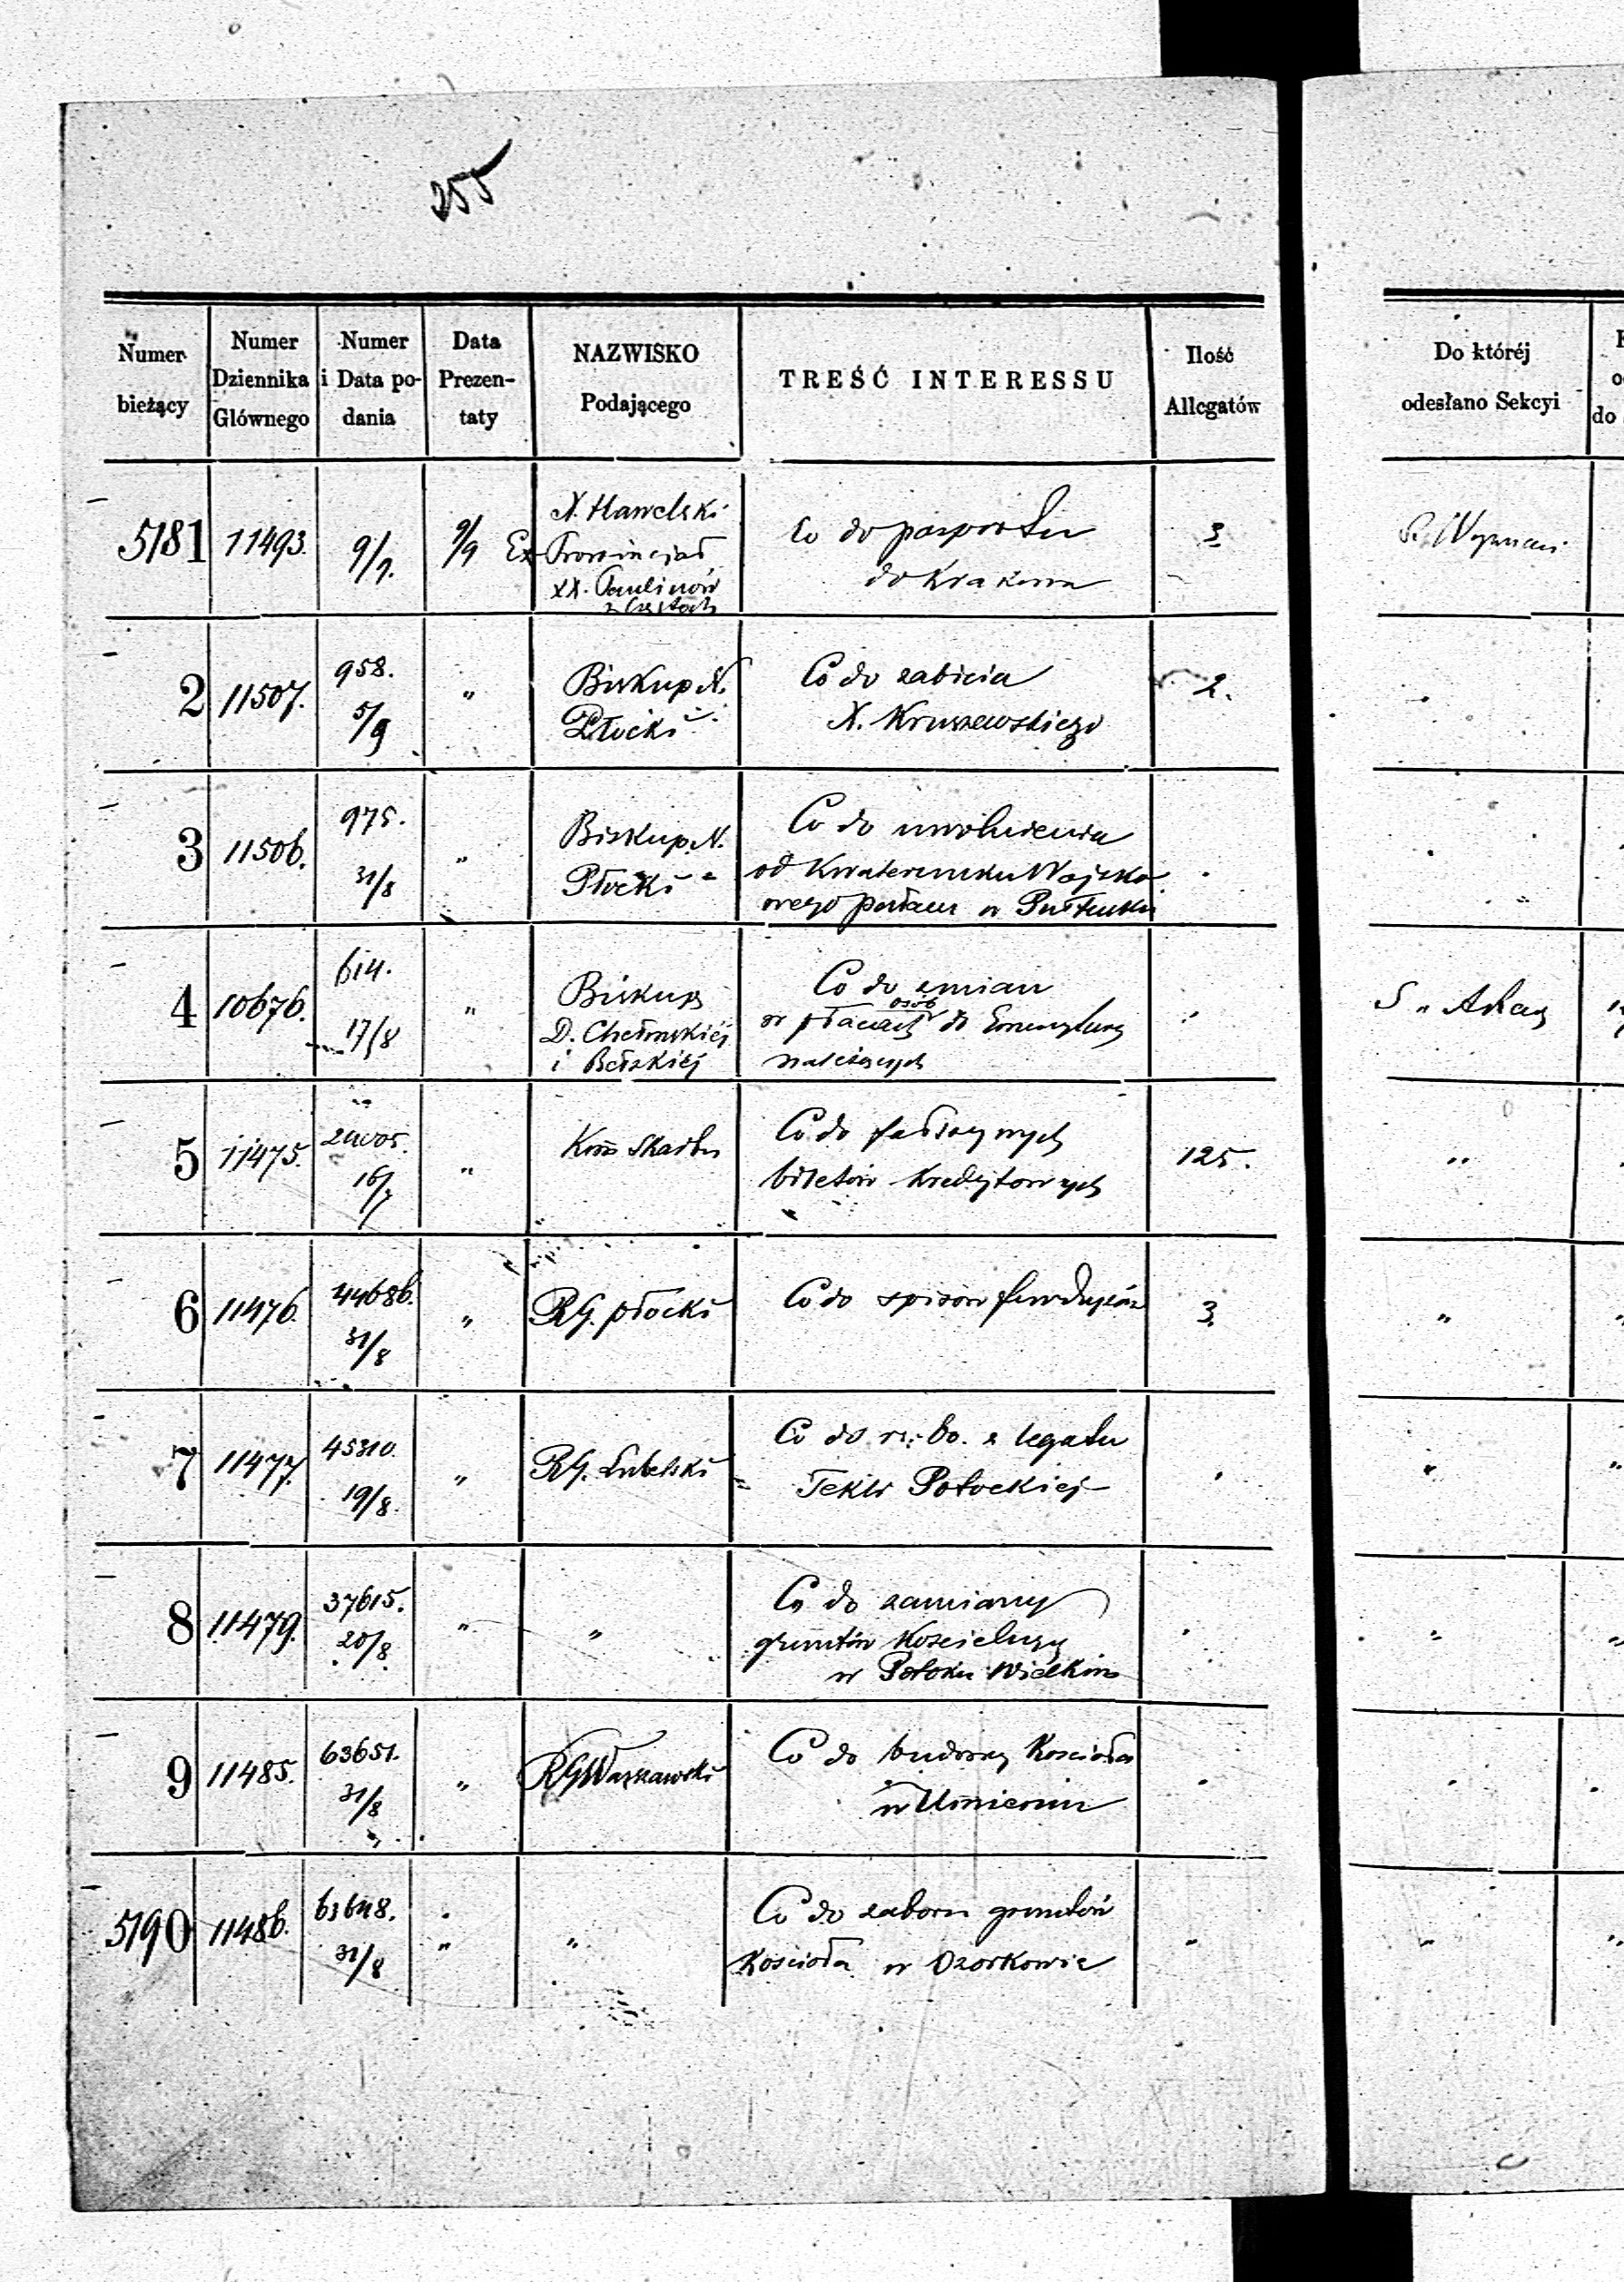 255
Numer bieżący | Numer Dziennika Głównego | Numer i Data podania | Data Prezentaty | NAZWISKO Podającego | TREŚĆ INTERESSU | Ilość Allegatów | Do któréj odesłano Sekcyi
5181 | 11493. | 9/9. | 9/9 | X. Hawelski Ex Prowincjał XX. Paulinów z Częstoch | Co do pasportu do Krakowa | 3. | S. Wyznań
2 | 11507. | 958. 5/9 | " | Biskup N. Płocki | Co do zabicia X. Kruszewskiego | 2.
3 | 11506. | 975. 31/8 | " | Biskup N. Płocki | Co do uwolnienia od Kwaterunku Wojskowego w Pułtusku
4 | 10676. | 614. 17/8 | " | Biskup D. Chełmskiéj i Bełzkiéj | Co do zmian w płacach osób do Emerytury należących
5 | 11475. | 16/7 | " | Kom Skarbu | Co do fałszywych biletów Kredytowych | 125.
6 | 11476. | 44686. 31/8 | " | RG. płocki | Co do spisów funduszów | 3. | "
7 | 11477. | 45310. 19/8. | " | RG. Lubelski | Co do z legatu Tekli Potockiej | "
8 | 11479. | 37615. 20/8 | " | " | Co do zamiany gruntów Kościelnych w Potoku Wielkim | "
9 | 11485. | 63651. 31/8 | " | RG Warszawski | Co do budowy Kościoła w Umieniu
5190 | 11486. | 63648. 31/8 | " | " | Co do zaboru gruntów Kościoła w Ozorkowie | "